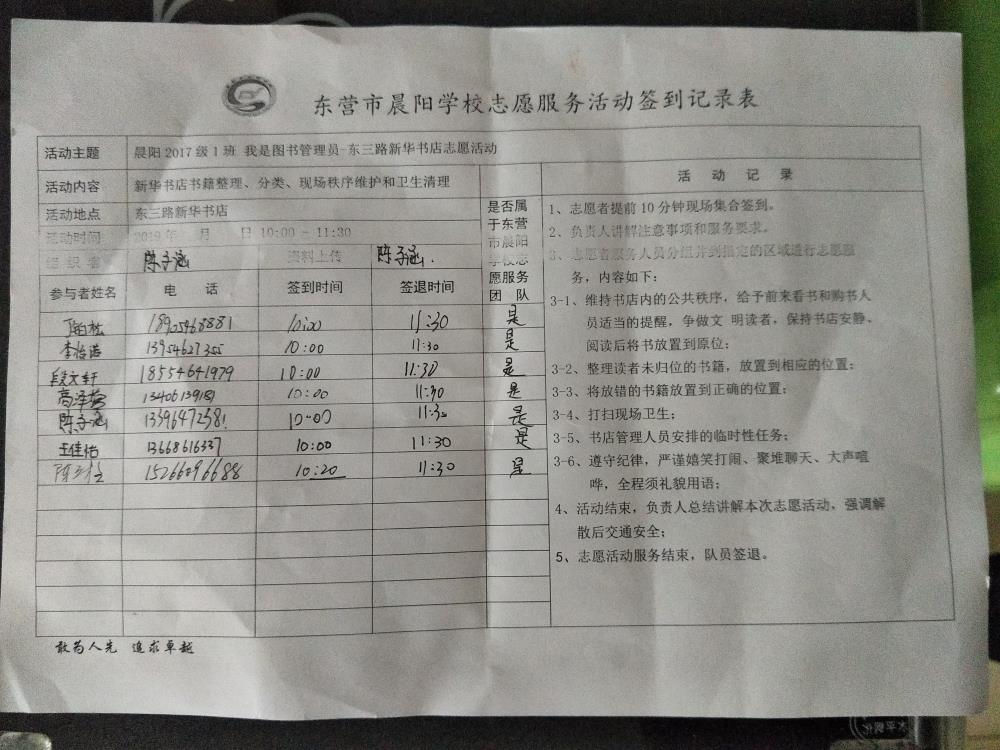 东营市晨阳学校志愿服务活动签到记录表
活动主题 晨阳2017级1班 我是图书管理员-东三路新华书店志愿活动
活动内容 新华书店书籍整理、分类、现场秩序维护和卫生清理
活动地点 东三路新华书店
活动时间 2019年 月 日 10:00-11:30
组织者 陈子涵 资料上传 陈子涵.
参与者姓名 电话 签到时间 签退时间
是否属
于东营
市晨阳
学校志
愿服务
团队
18905468881 10:00 11:30 是
李怡诺 13954627355 10:00 11:30 是
段文轩 18554641979 10:00 11:30 是
13406139181 10:00 11:30 是
陈子涵 13396472381 10:00 11:30 是
王佳怡 13668616337 10:00 11:30 是
15266096688 10:20 11:30 是
活动记录
1、志愿者提前10分钟现场集合签到。
2、负责人讲解注意事项和服务要求。
3、志愿者服务人员分组并到指定的区域进行志愿服
务,内容如下:
3-1、维持书店内的公共秩序,给予前来看书和购书人
员适当的提醒,争做文 明读者,保持书店安静、
阅读后将书放置到原位;
3-2、整理读者未归位的书籍,放置到相应的位置;
3-3、将放错的书籍放置到正确的位置;
3-4、打扫现场卫生;
3-5、书店管理人员安排的临时性任务;
3-6、遵守纪律,严谨嬉笑打闹、聚堆聊天、大声喧
哗,全程须礼貌用语;
4、活动结束,负责人总结讲解本次志愿活动,强调解
散后交通安全;
5、志愿活动服务结束,队员签退。
敢为人先 追求卓越